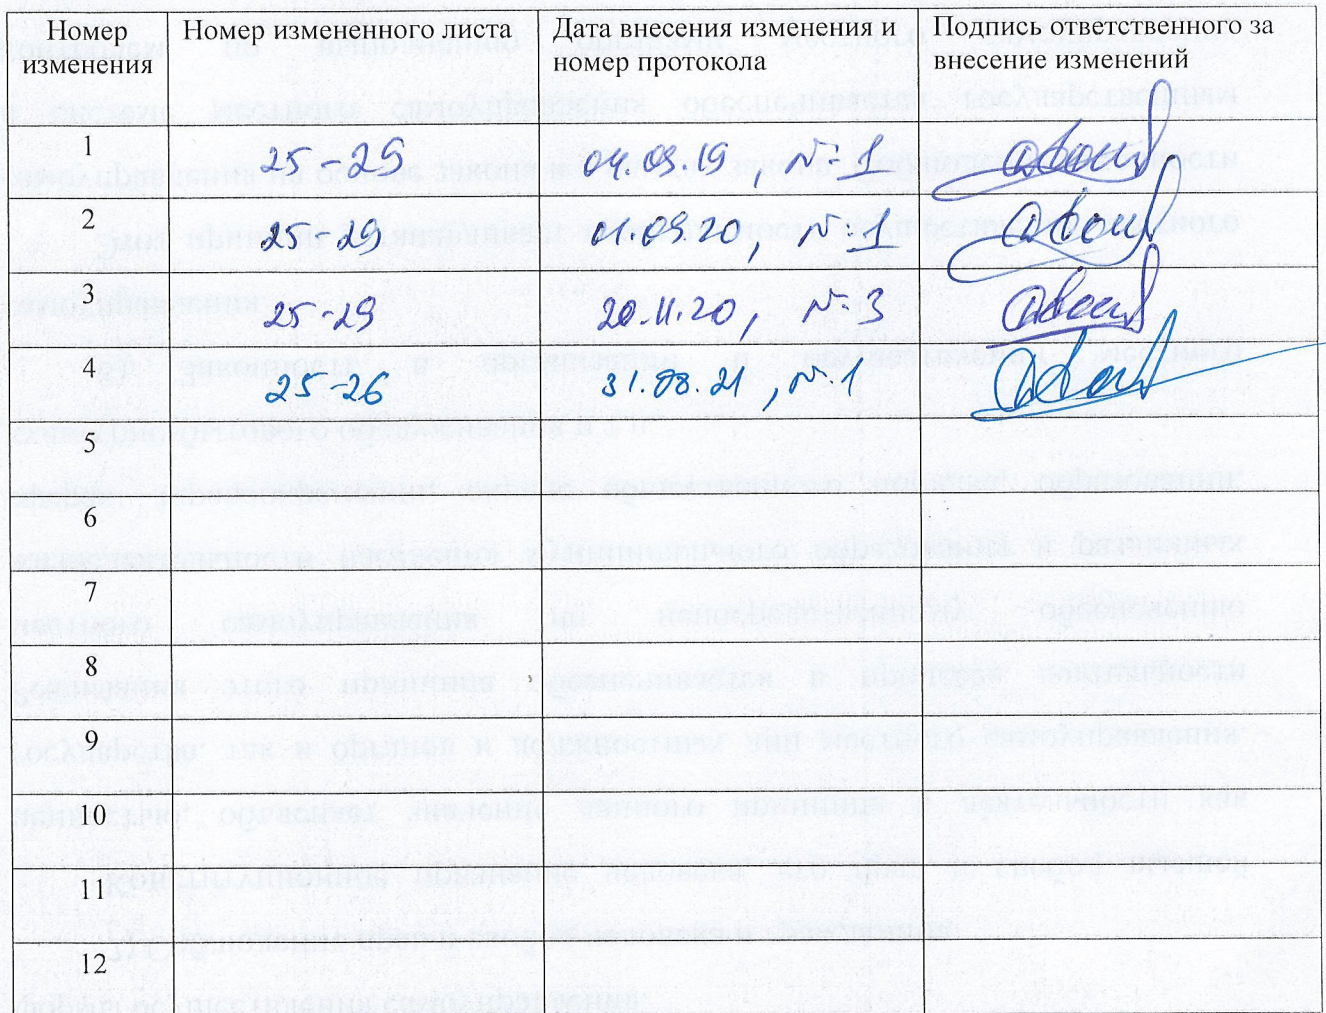 Номер изменения Номер измененного листа Дата внесения изменения и номер протокола Подпись ответственного за внесение изменений
1 25-29 04.09.19, № 1
2 25-29 01.09.20, № 1
3 25-29 20.11.20, № 3
4 25-26 31.08.21, № 1
5
6
7
8
9
10
11
12